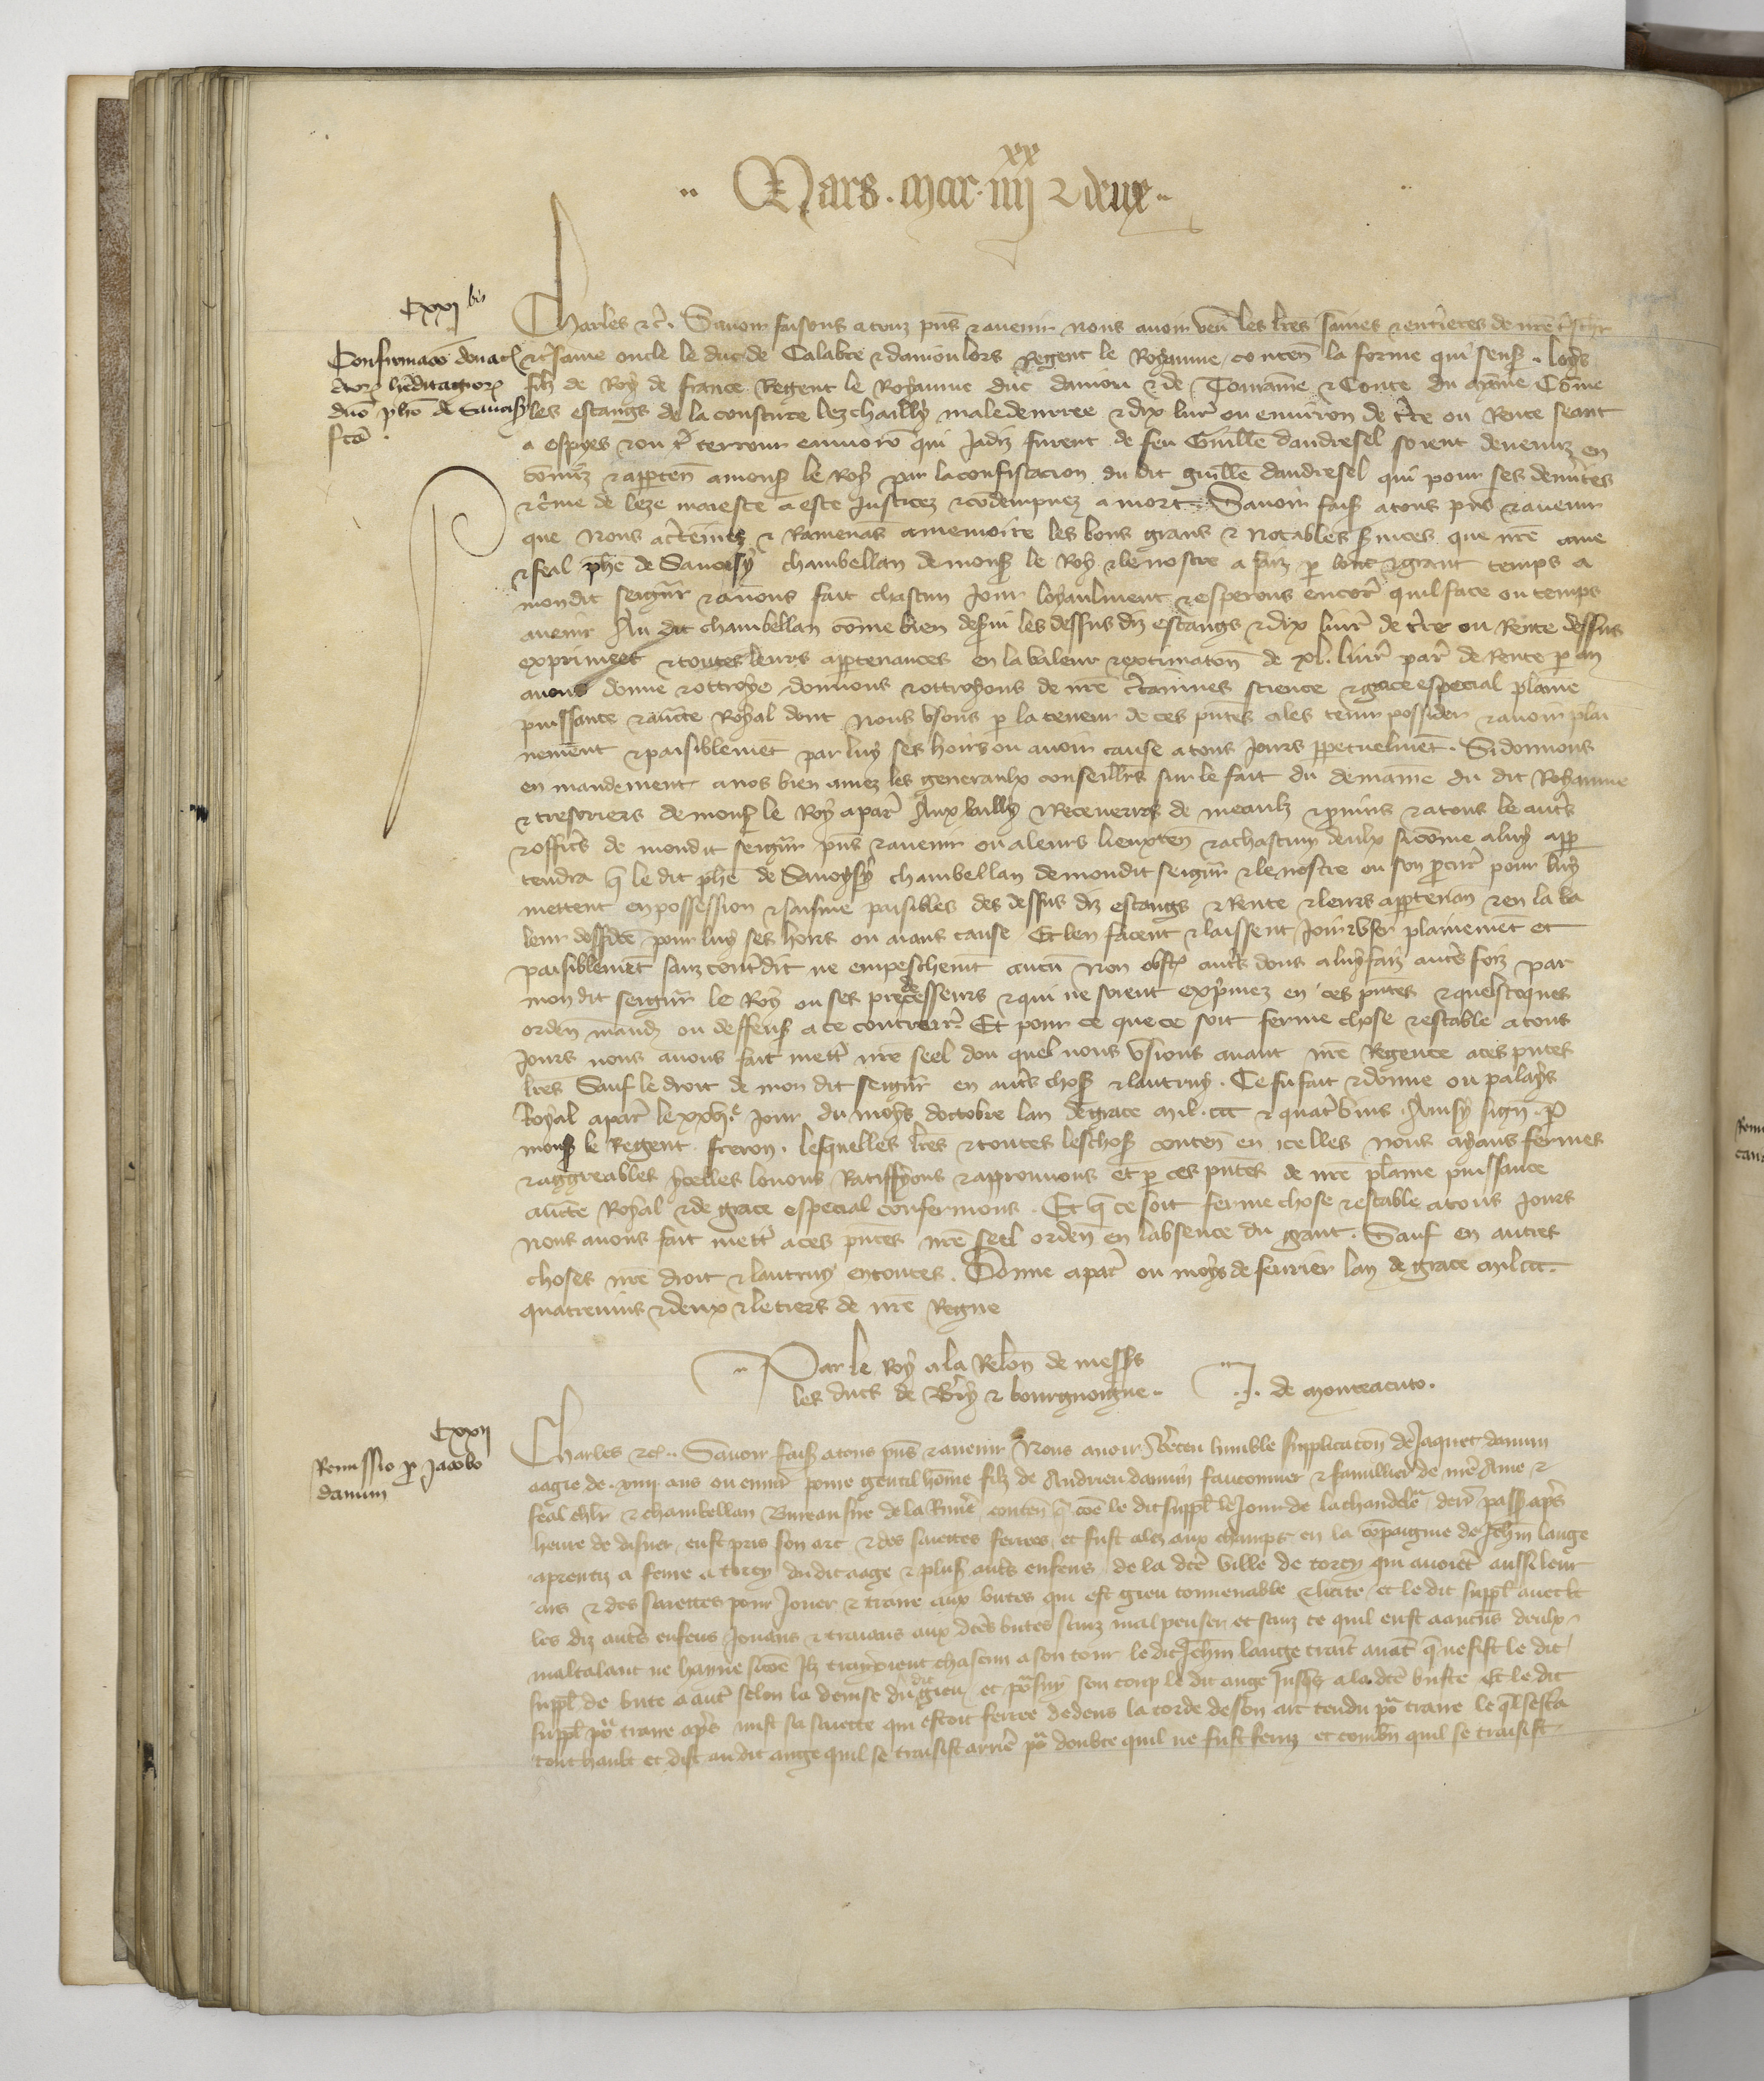 xx
Mars . ccc . iiij & deux
Cxxj bis
Confirmacō donacō
hēditagiorz
dnō phō de Savoisy
fcā.
Charles &c. Savoir faisons a touz pns & avenir nous avoir veu les lres saines & entieres de nre treschr
& tresame oncle le duc de Calabre & daniou lors Regent le Royaume, conten la forme qui sensˀ. Loys
filz de Roy de france Regent le Royaume duc daniou & de Touraine & Conte du Maine Cōme
les estangs de la cousture lez chailly maledemree & dix livr ou environ de tre ou Rente seant
a espyes & ou tˀ terrour enviro qui Jadiz furent de feu Guille dandresel soient devenuz en
cōmiz & apptenˉ a monsˀ le Roy par la confiscacion du dit guille dandresel qui pour ses demites
& cˀme de leze maieste a este Justicez & cōdempnez a mort. Savoir faisˀ a tous pns & avenir
que nous attenuz & Ramenās a memoire les bons grans & notables svices que nre ame
& feal phe de Savoisy chambellan de monsˀ le Roy & le nostre a faiz p lonc & grant temps a
mondit seigur & avons fait chascun Jour loyaulment & esperons encor quil face ou temps
avenir Au dit chambellan cōme bien desvi les dessus diz estangs & dix livr de tˀre ou Rente dessus
exprimees & toutes leurs apptenances en la valeur & extimaton de xl. livr par de Rente p an
avons donne & ottroye donnons & ottroyons de nre certaines science & grace especial plaine
puissance & aucte Royal dont nous usons p la teneur de ces pntes a les tenir posseder & avoir plai
nement & paisiblemēt par luy ses hoirs ou avoir cause a tous Jours ppetuelmēt. Si donnons
en mandement a nos bien amez les generaulx conseillrs sur le fait du demaine du dit Royaume
& tresoriers de monsˀ le Roy a par Aux bailly & Receveurs de meaulz & prvins & a tous le auts
& offics de mondit seigur pns & avenir ou a leurs lieuxten & a chascun deulx si cōme a luy app
tendra q le dit phe de Savoysy chambellan de mondit seigur & le nostre ou son pcur pour luy
mettent en possession & saisine paisibles des dessus diz estangs & Rente & leurs apptenan & en la va
leur dessdce pour luy ses hoirs ou aians cause Et len facent & laissent Joir & user plainemēt et
paisiblemēt sanz contdit ne empeschemt aucu Non obst auts dons a luy faiz auts foiz par
mon dit seigur le Roy ou ses predecesseurs & qui ne soient exprimez en ces pntes & quelscoques
orden mandˀ ou deffensˀ a ce contrair. Et pour ce que ce soit ferme chose & estable a tous
Jours nous avons fait mettˀ nre seel dou quel nous usions avant nre Regence a ces pntes
lres Sauf le droit de mon dit seigur en auts chosˀ & lautruy. Ce fu fait & donne ou palays
Royal a par le xxvj.e Jour du moys doctobre lan de grace mil.ccc & quatˀ vins. Ainsy sign. p
monsˀ le Regent. freron. Lesquelles lres & toutes les chosˀ conten en icelles nous ayans fermes
& aggreables ycelles louons Ratiffyons & approuvons et p ces pntes de nre plaine puissance
aucte Royal & de grace especial confermons. Et q ce soit ferme chose & estable a tous Jours
Nous avons fait mettˀ a ces pntes nre seel orden en labsence du grant. Sauf en autres
choses nre droit & lautruy en toutes. Donne a par ou moys de fevrier lan de grace mil ccc.
quatrevins & deux & le tiers de nre Regne
Par le Roy a la Relon de messˀs
les ducs de Bry & bourgoingne.
J. de monteacuto.
Cxxij
Remissio p Jacobo
danun
Charles &c. Savoir faisˀ a tous pns & avenir Nous avoir Receu lumble supplicaton de Jaquet danun
aagie de. xiiij ans ou envir povre gentil hōme filz de Andrieu danun fauconnier & famillier de nre Ame &
feal chlr & chambellan Bureau sire de la Rivie conten q cōe le dit suppl le Jour de la chandele derr passe aps
heure de disner eust pris son arc & des saiettes ferrees et fust alez aux champs en la cōpaignie de Jehn lange
aprentiz a feme a torcy du dit aage & plusˀ auts enfens de la dce ville de torcy qui avoiēt aussi leur
ars & des saiettes pour Jouer & traire aux butes qui est gieu convenable & licite et le dit suppl avecqs
les diz auts enfens Jouans & traians aux dces butes sanz mal penser et sanz ce quil eust a aucuns deulx
maltalant ne hayne si cōe Ilz traioient chascun a son tour le dit Jehn lange trait avāt q ne fist le dit
suppl de bute a autˀ selon la devise du dit gieu et psuy son coup le dit ange Jusqs a la dce buste Et le dit
suppl po traire aps mist sa saiette qui estoit ferree dedens la corde de son arc tendu po traire le ql sesta
tout hault et dist au dit ange quil se traisist arrie po doubte quil ne fust feruz et combn quil se traisist